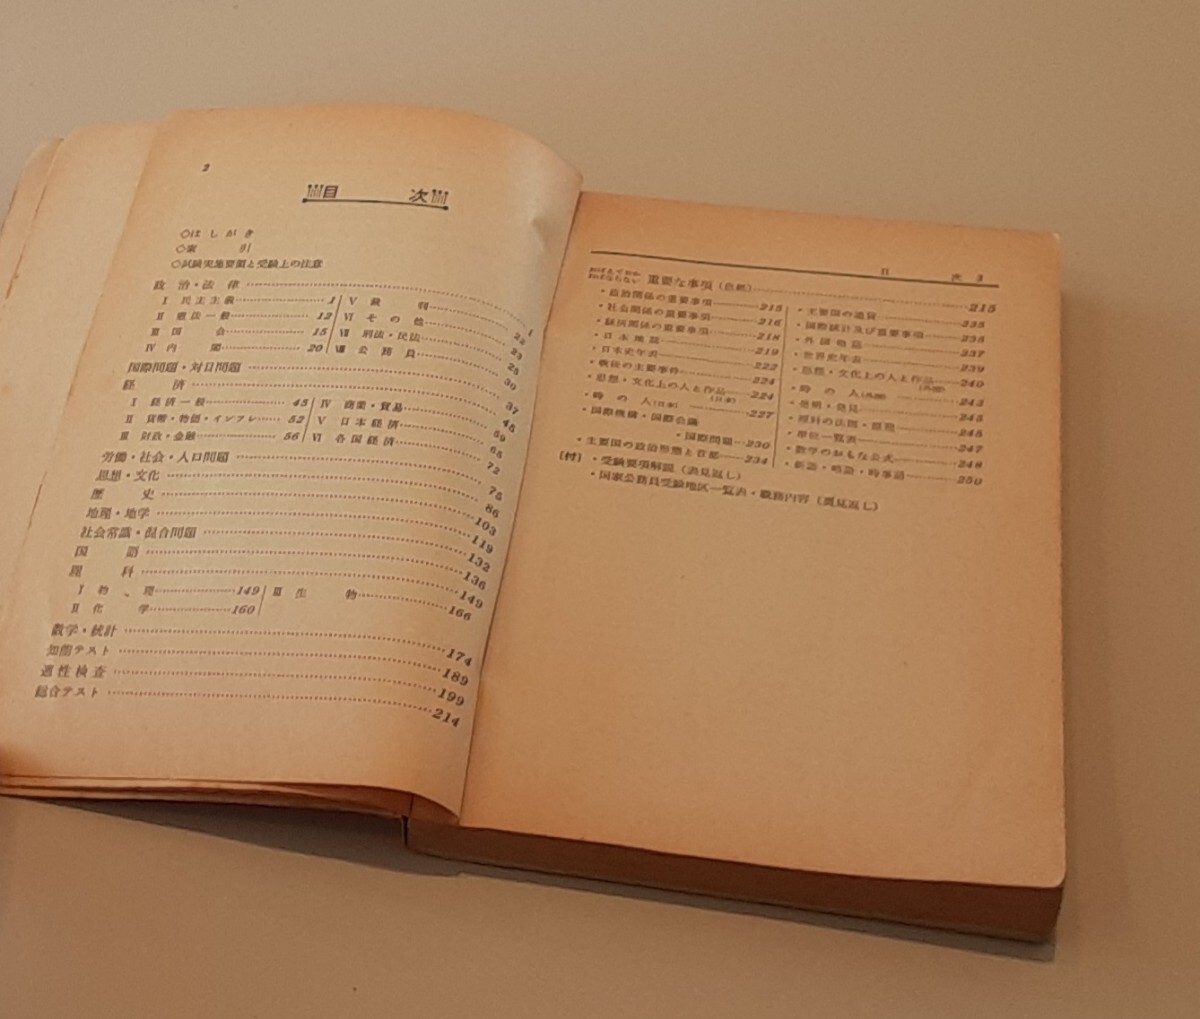 2
目 次
◇はしがき
◇索 引
◇試験実施要領と受験上の注意
政治・法律 1
I 民主主義 1 V 裁 判 22
II 憲法一般 12 VI その他 23
III 国 会 15 VII 刑法・民法 25
IV 内 閣 20 VIII 公務員 30
国際問題・対日問題 37
経 済 45
I 経済一般 45 IV 商業・貿易 59
II 貨幣・物価・インフレ 52 V 日本経済 65
III 財政・金融 56 VI 各国経済 72
労働・社会・人口問題 75
思想・文化 86
歴 史 103
地理・地学 119
社会常識・混合問題 132
国 語 136
理 科 149
I 物 理 149 III 生 物 166
II 化 学 160
数学・統計 174
知能テスト 189
適性検査 199
総合テスト 214
目 次 3
おぼえておかねばならない 重要な事項(色紙) 215
・政治関係の重要事項 215
・社会関係の重要事項 216
・経済関係の重要事項 218
・日本地誌 219
・日本史年表 222
・戦後の主要事件 224
・思想・文化上の人と作品(日本) 224
・時の人(日本) 227
・国際機構・国際会議
・国際問題 230
・主要国の政治形態と首都 234
・主要国の通貨 235
・国際統計及び重要事項 236
・外国地誌 237
・世界史年表 239
・思想・文化上の人と作品(外国) 240
・時の人(外国) 243
・発明・発見 245
・理科の法則・原理 245
・単位一覧表 247
・数学のおもな公式 248
・新語・略語・時事語 250
(付)・受験要項解説(表見返し)
・国家公務員受験地区一覧表・職務内容(裏見返し)